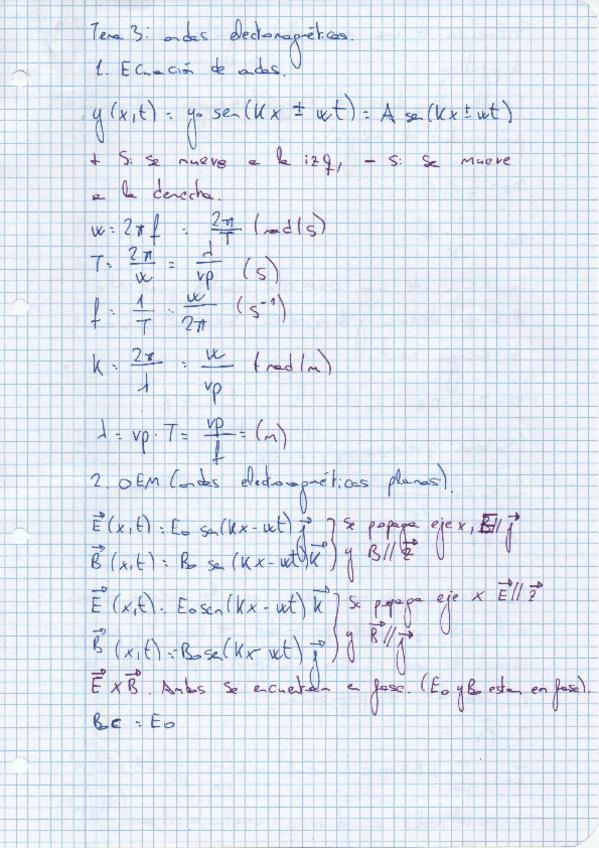 Tema 3: ondas electomagnéticas.
1. Ecuación de ondas.
y(x,t) = y₀ sen(Kx ± wt) = A sen(Kx ± wt)
+ Si se mueve a la izq, - si se mueve
a la derecha.
w = 2πf = 2π/T (rad/s)
T = 2π/w = λ/vp (s)
f = 1/T = w/2π (s⁻¹)
K = 2π/λ = w/vp (rad/m)
λ = vp · T = vp/f = (m)
2. OEM (ondas electromagnéticas planas).
E⃗(x,t) = E₀ sen(Kx - wt) j⃗ } Se propaga eje x, E // j⃗
B⃗(x,t) = B₀ sen(Kx - wt) K⃗ } y B // z⃗
E⃗(x,t) = E₀ sen(Kx - wt) K⃗ } Se propaga eje x E⃗ // z⃗
B⃗(x,t) = B₀ sen(Kx - wt) j⃗ } y B⃗ // j⃗
E⃗ x B⃗. Ambos se encuentran en fase. (E₀ y B₀ estan en fase).
Bc = E₀